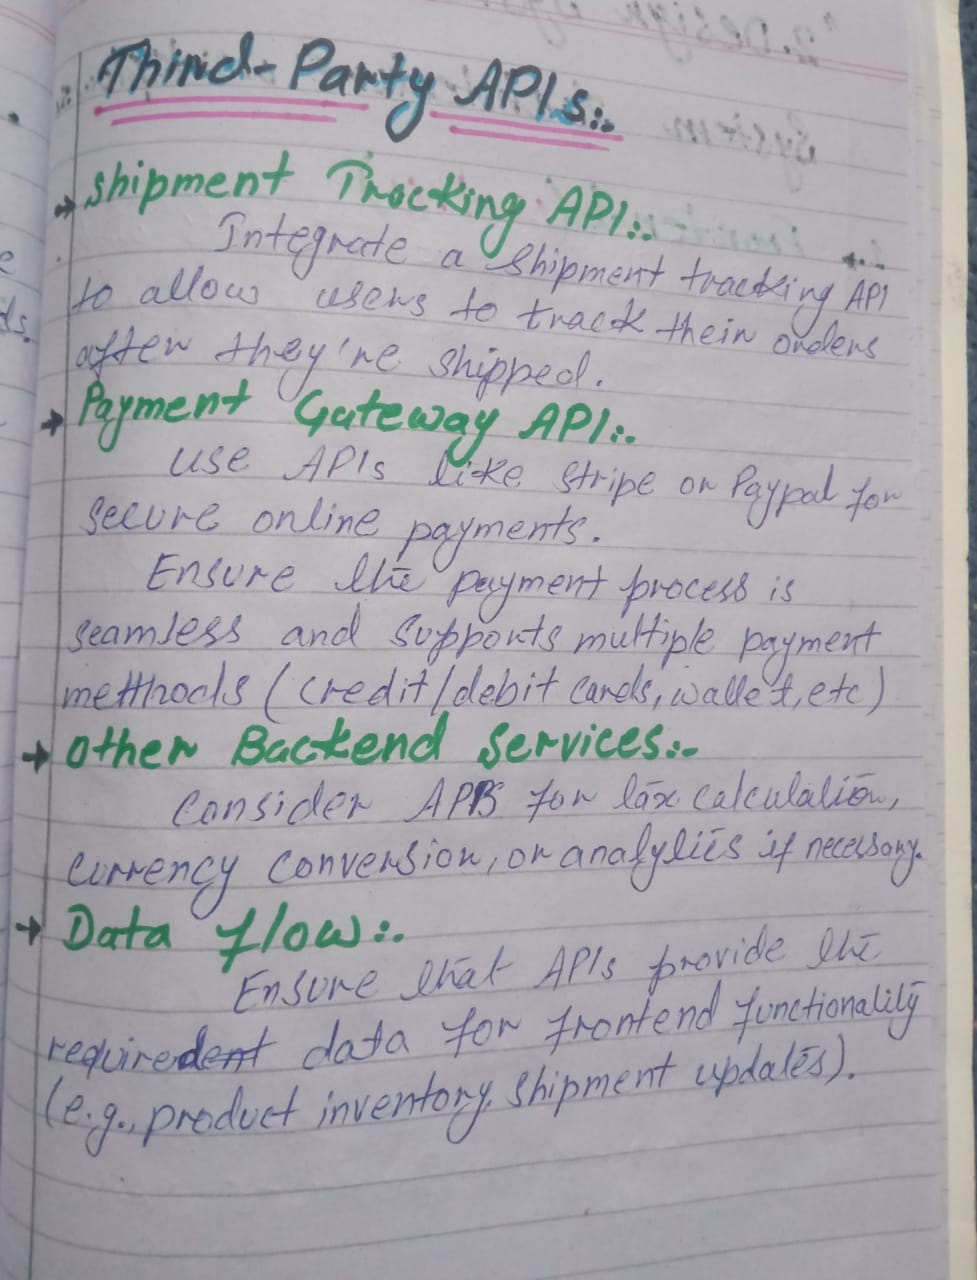 Third-Party APIs:-
→ Shipment Tracking API:-
Integrate a shipment tracking API
to allow users to track their orders
after they're shipped.
→ Payment Gateway API:-
Use APIs like Stripe or Paypal for
secure online payments.
Ensure the payment process is
seamless and supports multiple payment
methods (credit/debit cards, wallet, etc)
→ Other Backend Services:-
Consider APIs for tax calculation,
currency conversion, or analytics if necessary.
→ Data flow:-
Ensure that APIs provide the
required data for frontend functionality
(e.g., product inventory, shipment updates).